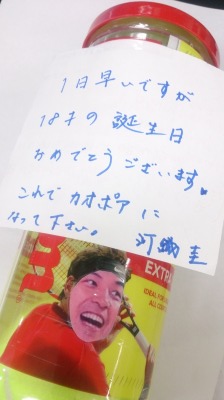 1日早いですが
18才の誕生日
おめでとうございます。
これでカオポアに
なって下さい。
EXTRA
IDEAL FOR
ALL CO